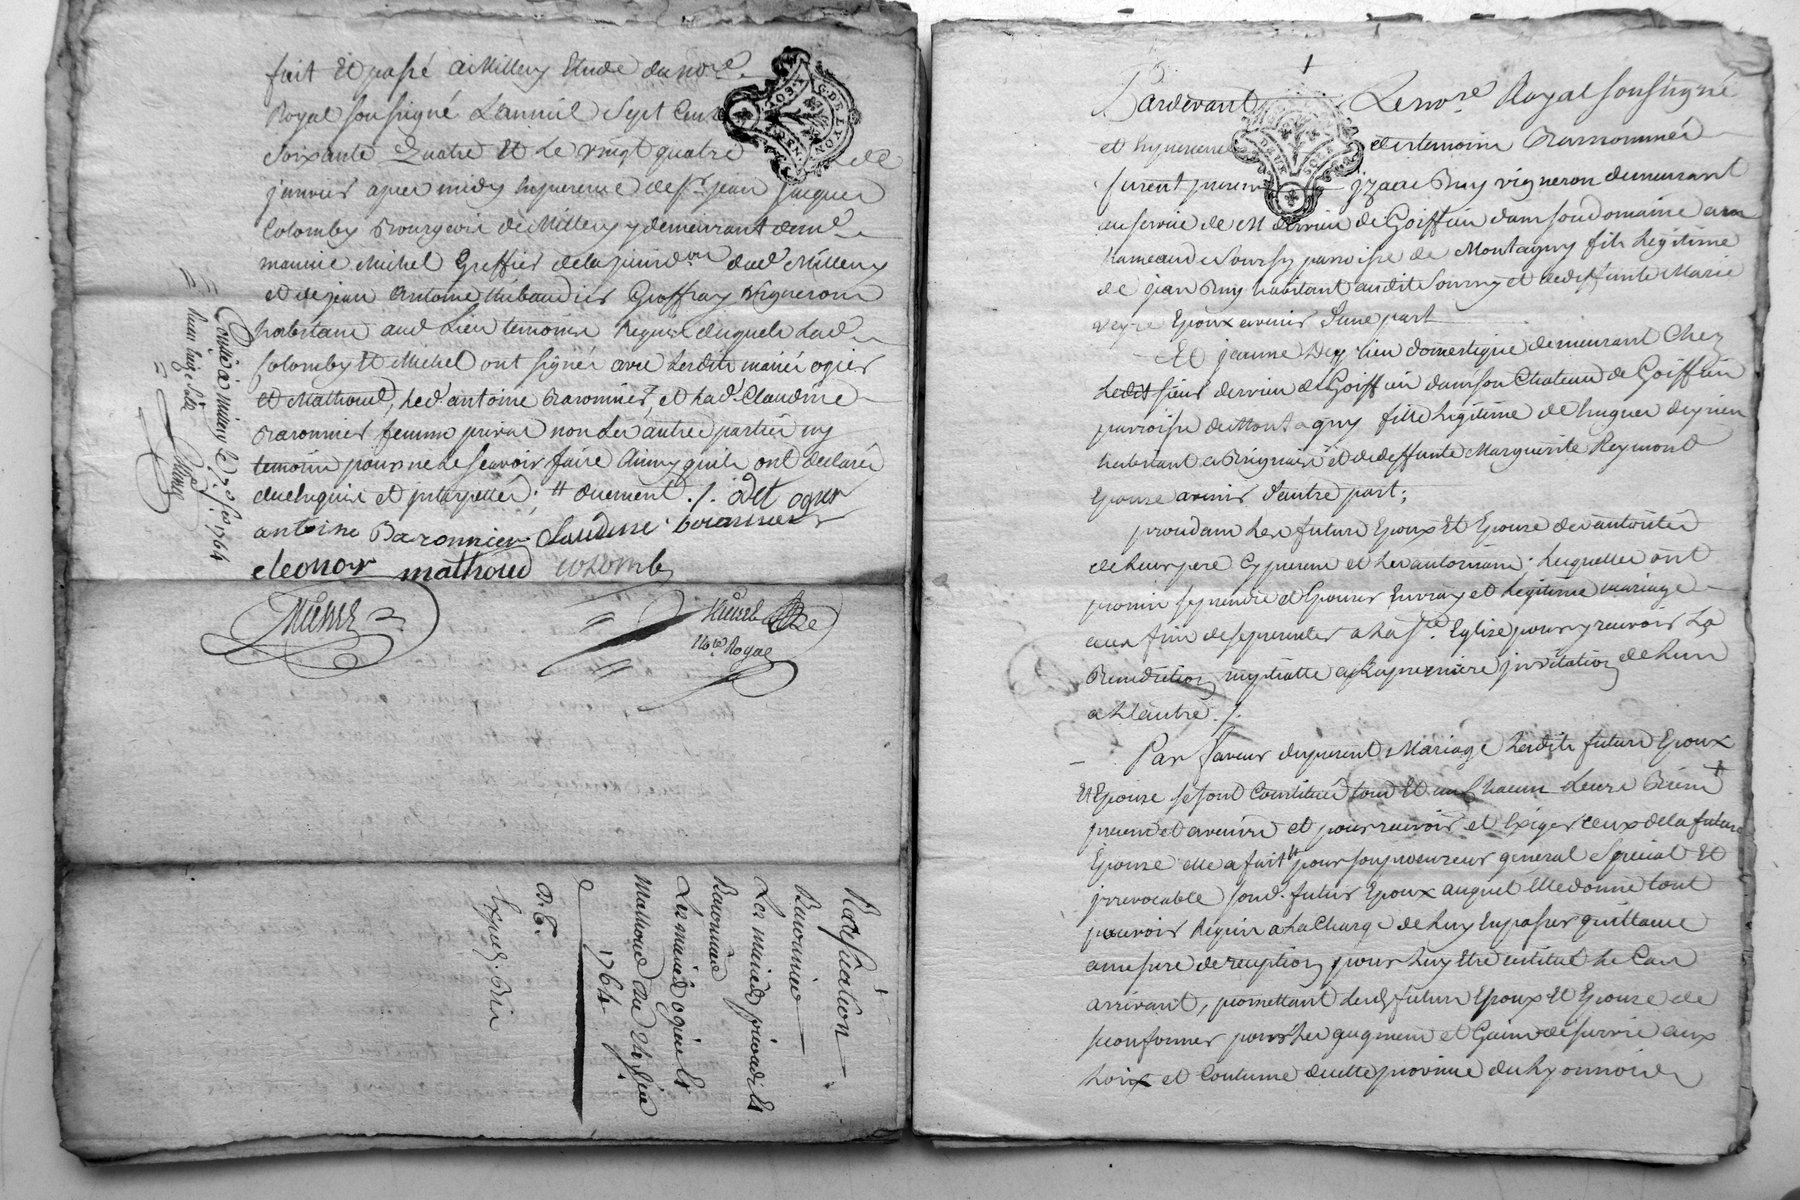 fait Et passé a Millery Etude du no.re
Royal soussigné L'an mil Sept Cent
Soixante Quatre Et Le vingt quatre
janvier apres midy En presence de Sr jean jacques
Colomby Bourgeois de Millery y demeurant de me
maurice Michel Greffier de la jurid.on dud. Millery
et de jean Antoine thibaudier Geoffray vigneron
habitant aud. Lieu temoins Requis desquels Led.
Colomby Et Michel ont signé avec Lesdits mariés ogier
Et Mathoud, Led. antoine Baronnier, et Lad. Claudine
Baronnier femme privat non Les autres parties ny
temoin pour ne le scavoir faire Ainsy qu'ils ont declaré
Enquis et interpellés; # duement ./. ogier
antoine Baronnier Claudine baronnier
eleonor mathoud colomby
Michel
No.re Royal
Controllé à millery le 1764
Ratification
Baronnier
Les mariés privat Et
Baronnier
Les mariés ogier Et
Mathoud
1764
Exped.
Pardevant Le no.re Royal soussigné
et En presence des temoins Bas nommés
furent presens jzaac Bruy vigneron demeurant
au service de M dervieu de Goiffieu dans son domaine au
hameau de Sourzy parroisse de Montagny fils Legitime
de jean Bruy habitant audit Sourzy et de deffunte Marie
Epoux avenir d'une part
Et jeanne domestique demeurant Chez
Ledit sieur dervieu de Goiffieu dans son Chateau de Goiffieu
parroisse de Montagny fille Legitime de hugues
habitant a Brignais et de deffunte Marguerite Reymond
Epouse avenir d'autre part;
procedant Les futurs Epoux Et Epouse de l'autorité
de Leurs pere Cy presens et Les autorisans; Lesquelles ont
promis se prendre et Epouser En vray et Legitime mariage
aux fins de se presenter a La Ste Eglise pour y recevoir La
Benediction nuptialle a La premiere jnvitation de L'un
a L'autre ./.
Par faveur du present Mariage Lesdits futurs Epoux
Et Epouse se sont Constitués tous Et un Chacun Leurs Biens
presents et avenirs et pour recevoir et Exiger Ceux de la future
Epouse elle a fait pour son procureur general Special Et
jrrevocable son d. futur Epoux auquel Elle donne tout
pouvoir Requis a La Charge de Luy En passer quittance
a mesure de reception pour Luy Etre restitué Le Cas
arrivant, promettant Lesd. futurs Epoux Et Epouse de
se conformer pour Les augment et Gains de survie aux
Loix et Coutume de cette province du Lyonnois